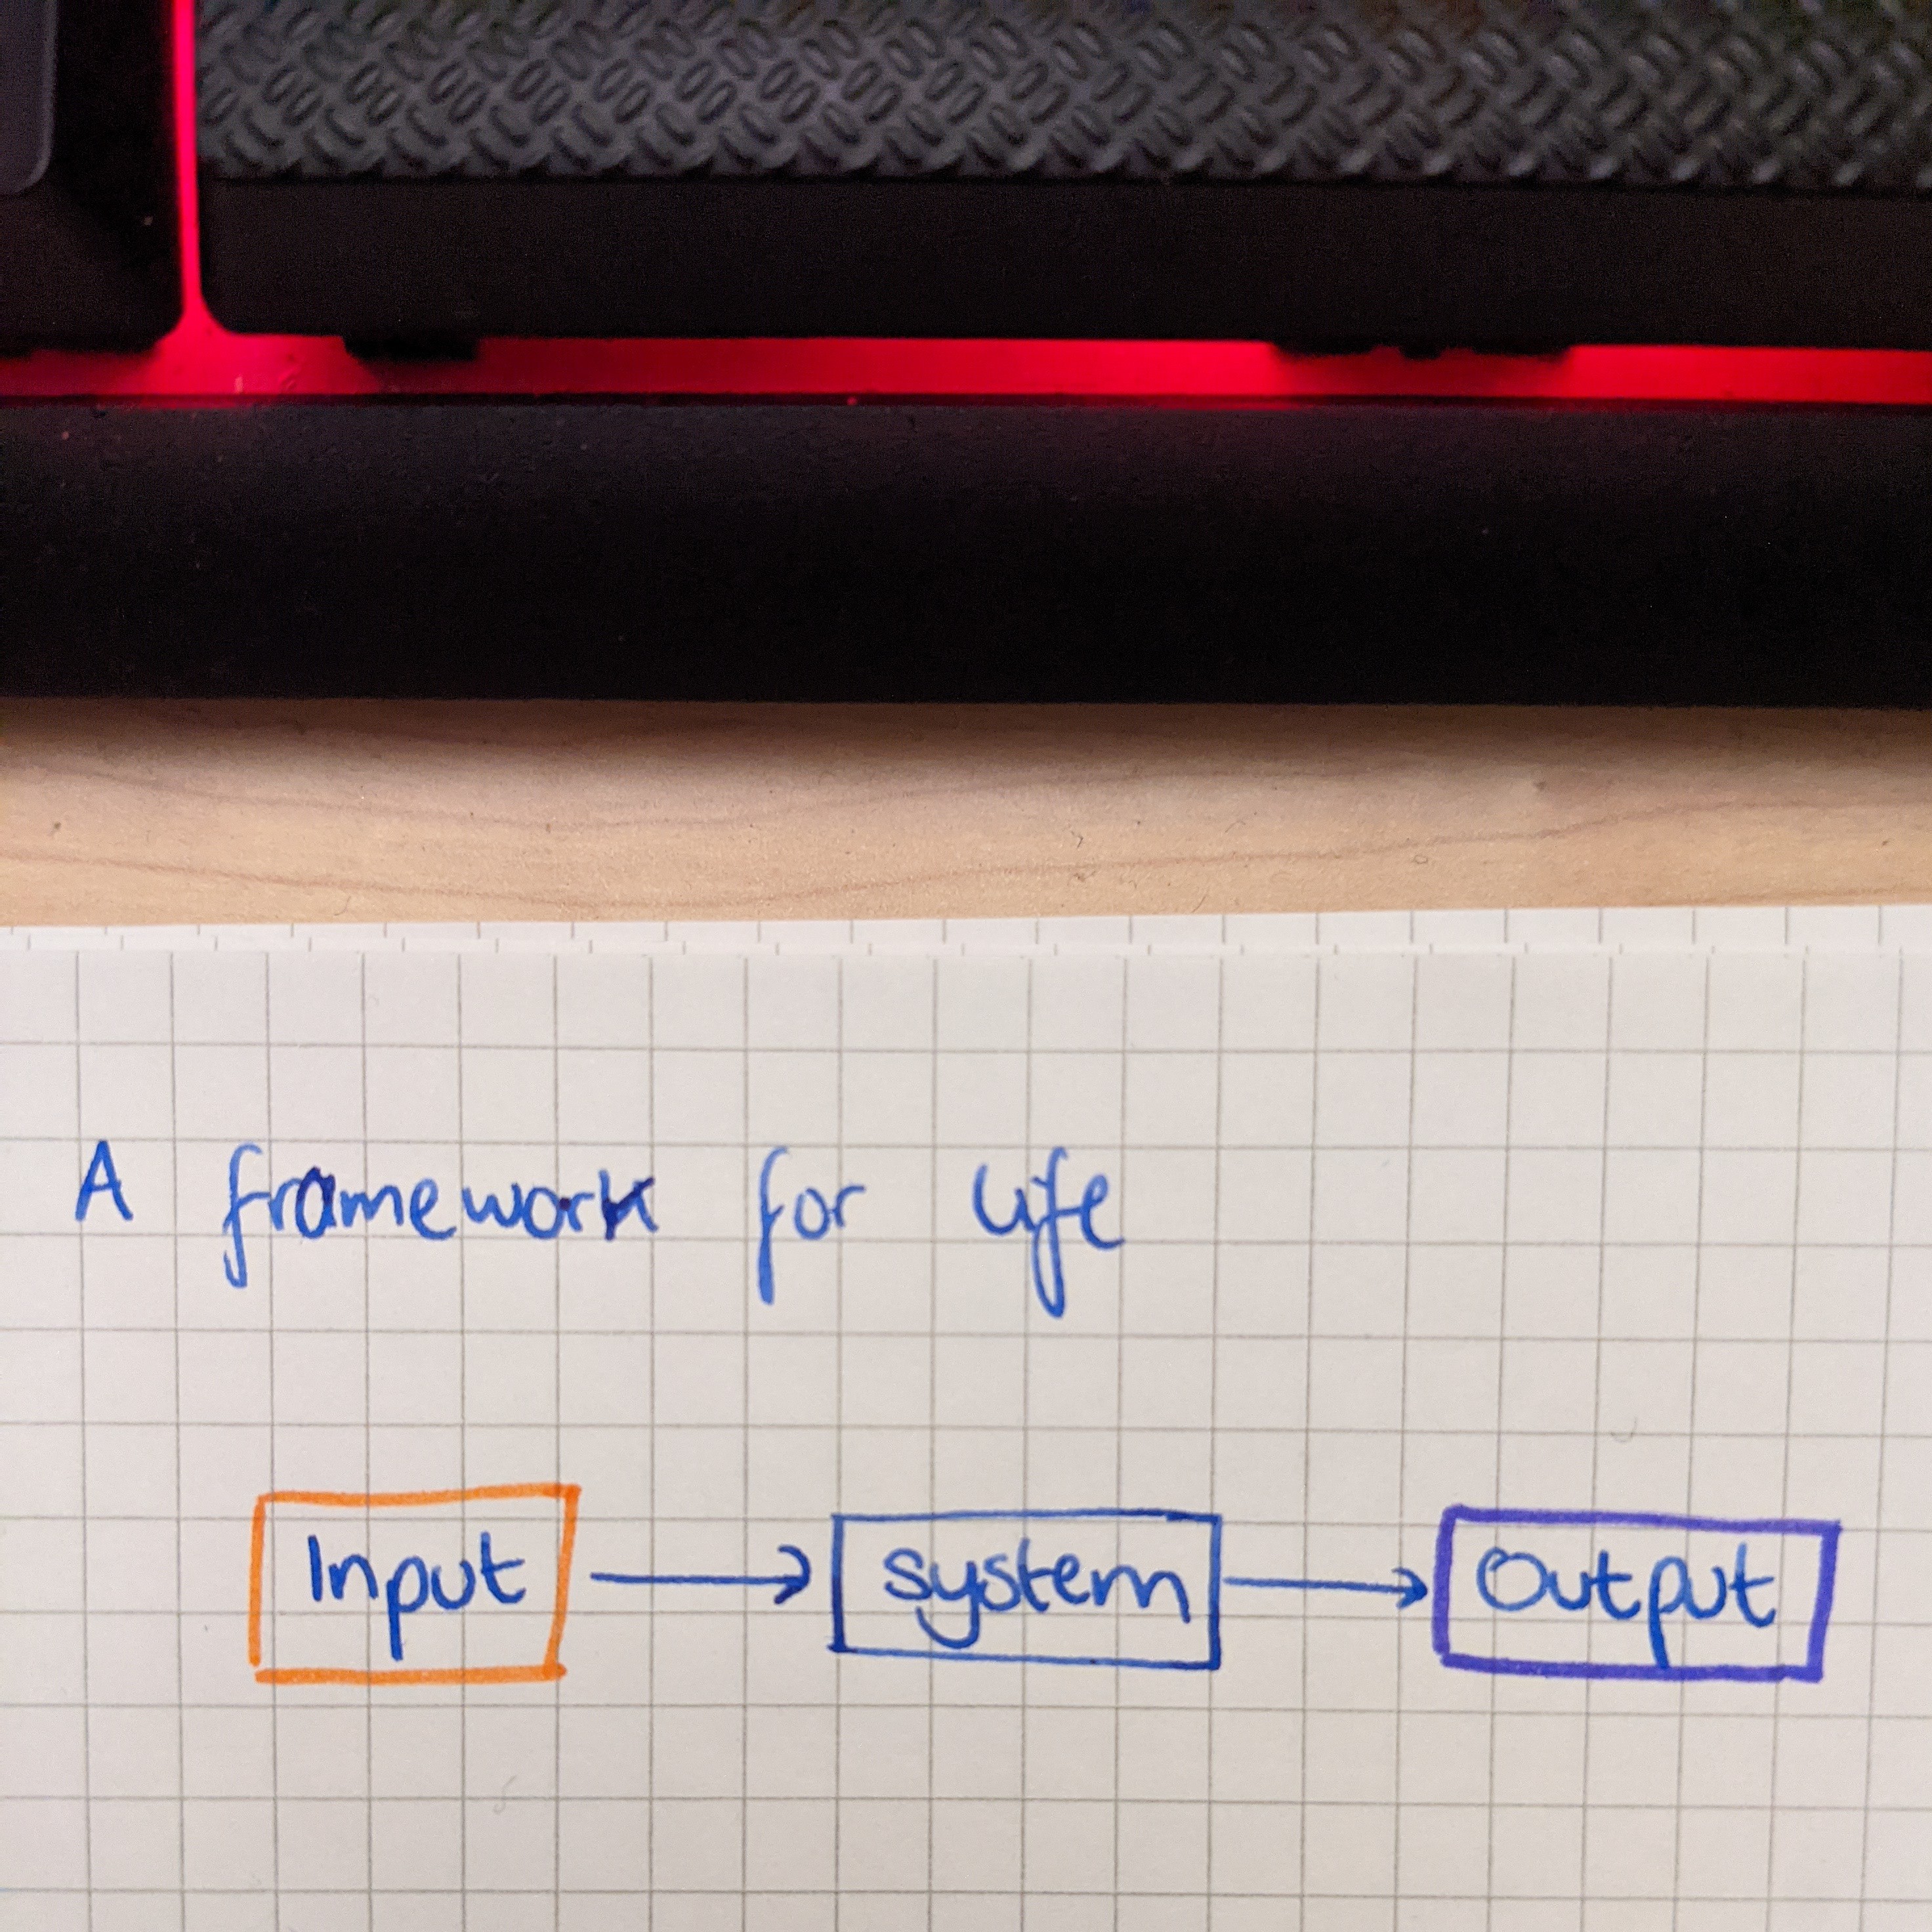 A framework for life
Input system Output